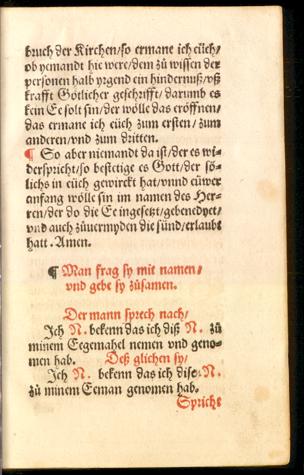 bruch der Kirchen/so ermane ich eüch/
ob yemandt hie were/dem zů wissen der
personen halb yrgend ein hindernuß/vß
krafft Götlicher geschrifft/darumb es
kein Ee solt sin/der wölle das eröffnen/
das ermane ich eüch zum ersten/zum
anderen/vnd zum dritten.
¶ So aber niemandt da ist/der es wi-
derspricht/so bestetige es Gott/der sö-
lichs in eüch gewirckt hat/vnnd eüwer
anfang wölle sin im namen des Her-
ren/der do die Ee ingesetzt/gebenedyet/
vnd auch zůuermyden die sünd/erlaubt
hatt. Amen.
¶ Man frag sy mit namen/
vnd gebe sy zůsamen.
Der mann sprech nach/
Ich N. bekenn das ich diß N. zů
minem Eegemahel nemen vnd geno-
men hab. Deß glichen sy/
Ich N. bekenn das ich disē N.
zů minem Eeman genomen hab.
Spricht